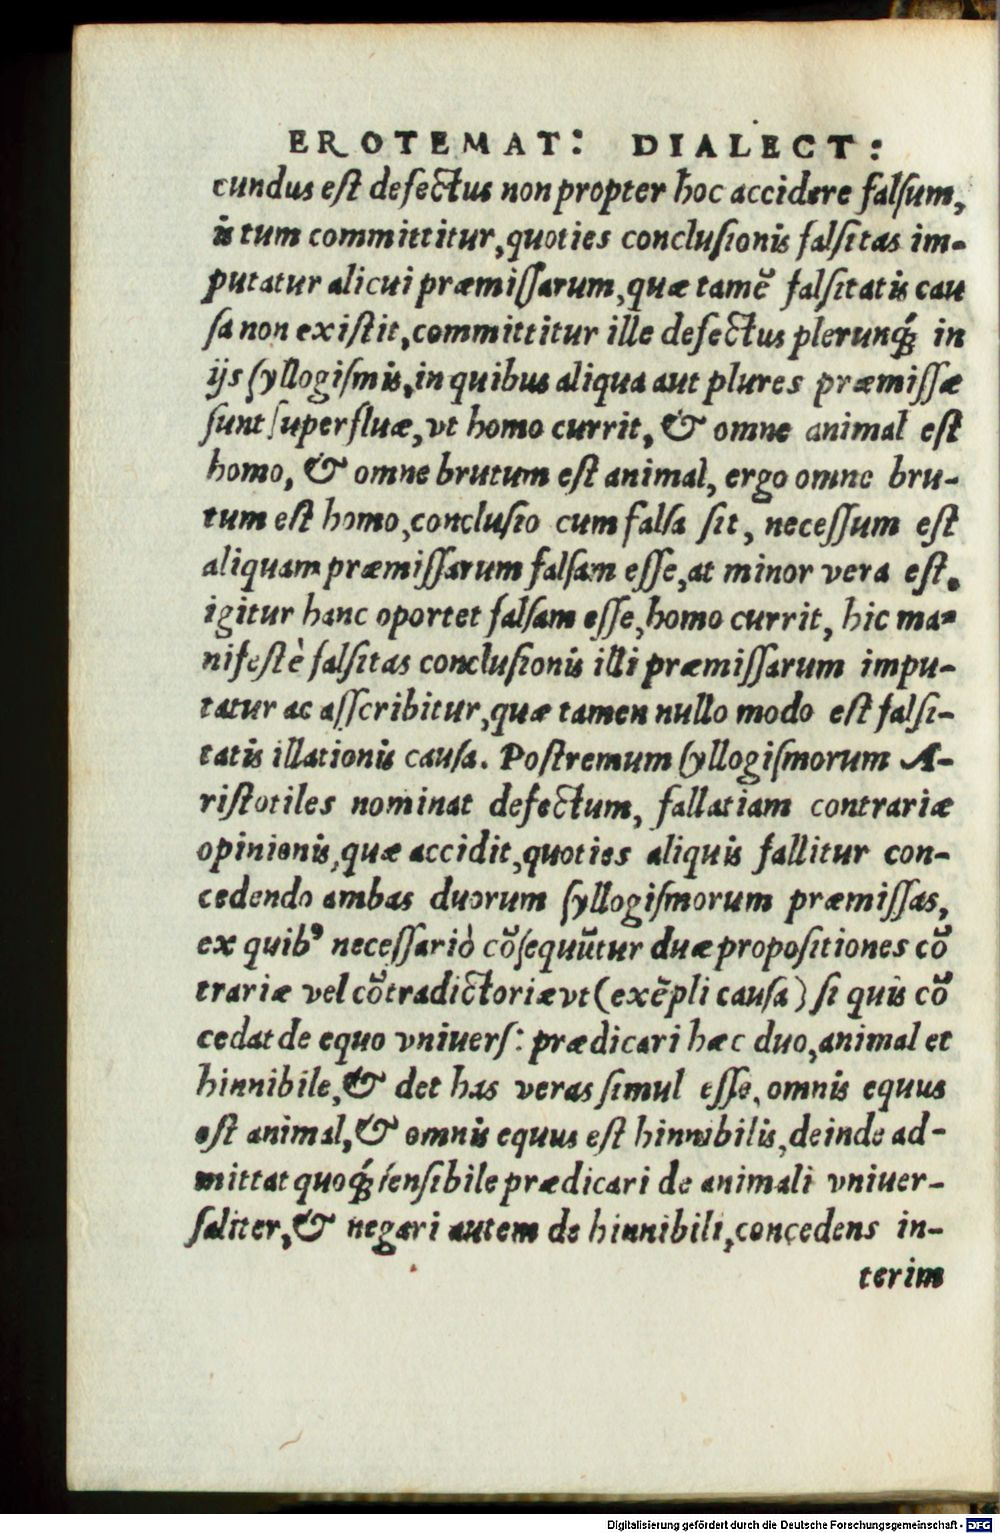 EROTEMAT: DIALECT:
cundus est defectus non propter hoc accidere falsum,
is tum committitur, quoties conclusionis falsitas im-
putatur alicui præmissarum, quæ tamẽ falsitatis cau
sa non existit, committitur ille defectus plerunq́; in
ijs syllogismis, in quibus aliqua aut plures præmissæ
sunt superfluæ, vt homo currit, & omne animal est
homo, & omne brutum est animal, ergo omne bru-
tum est homo, conclusio cum falsa sit, necessum est
aliquam præmissarum falsam esse, at minor vera est.
igitur hanc oportet falsam esse, homo currit, hic ma-
nifestè falsitas conclusionis illi præmissarum impu-
tatur ac asscribitur, quæ tamen nullo modo est falsi-
tatis illationis causa. Postremum syllogismorum A-
ristotiles nominat defectum, fallatiam contrariæ
opinionis, quæ accidit, quoties aliquis fallitur con-
cedendo ambas duorum syllogismorum præmissas,
ex quibꝰ necessariò cõsequũtur duæ propositiones cõ
trariæ vel cõtradictoriæ vt (exẽpli causa) si quis cõ
cedat de equo vniuers: prædicari hæc duo, animal et
hinnibile, & det has veras simul esse, omnis equus
est animal, & omnis equus est hinnibilis, deinde ad-
mittat quoq́; sensibile prædicari de animali vniuer-
saliter, & negari autem de hinnibili, concedens in-
terim
Digitalisierung gefördert durch die Deutsche Forschungsgemeinschaft - DFG